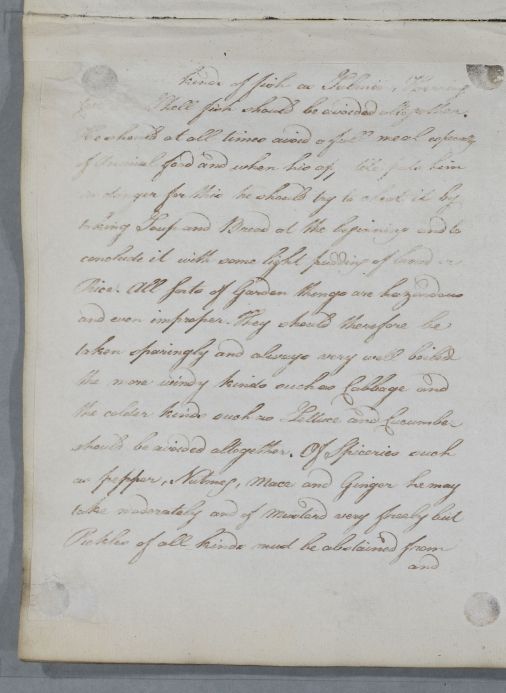 kinds of fish as Salmon, Herring
Shell fish should be avoided altogether.
He should at all times avoid a full meal especially
of Animal food and when his appetite puts him
in danger for this he should try to abate it by
taking Soup and Bread at the beginning and to
conclude it with some light pudding of bread or
Rice. All sorts of Garden things are hazardous
and even improper. They should therefore be
taken sparingly and always very well boiled
the more windy kinds such as Cabbage and
the colder kinds such as Lettuce and Cucumber
should be avoided altogether. Of Spiceries such
as pepper, Nutmeg, Mace and Ginger he may
take moderately and of Mustard very freely but
Pickles of all kinds must be abstained from
and